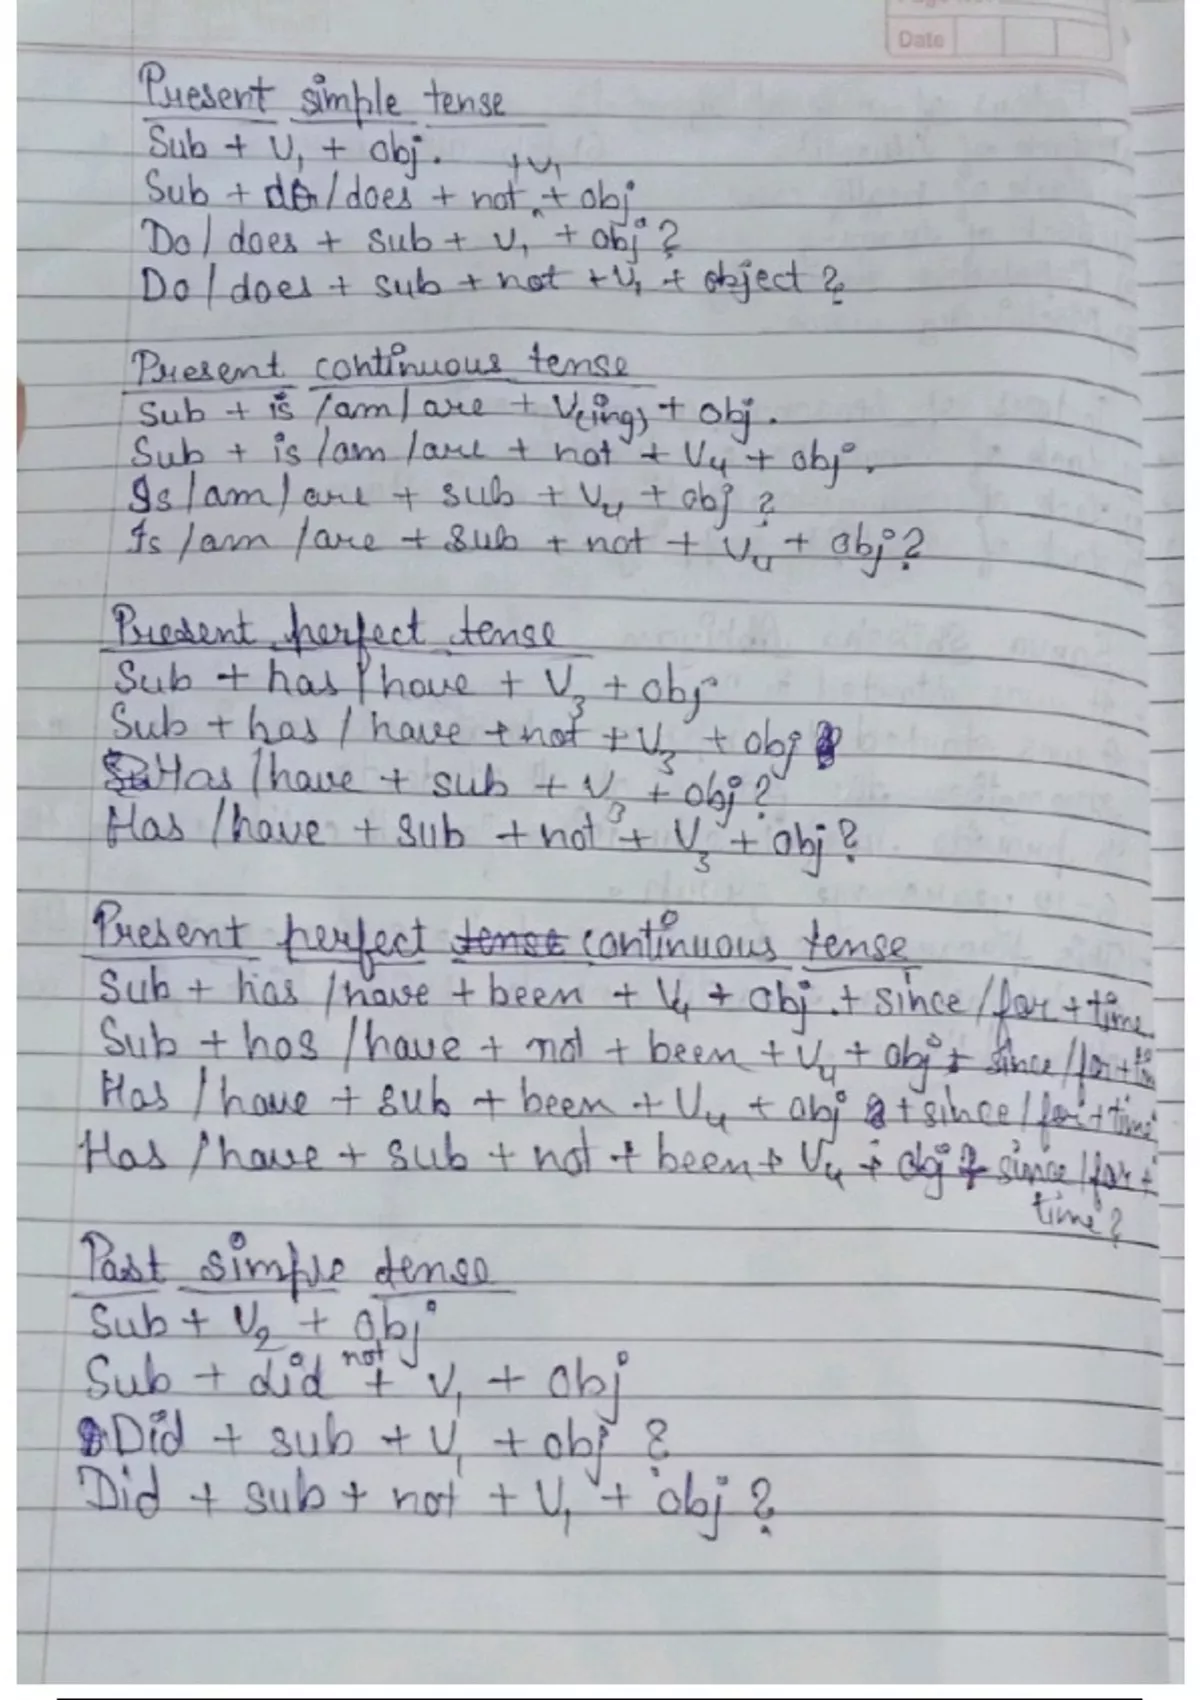 Date
Present simple tense
Sub + V1 + obj.
Sub + do/does + not +V1 + obj
Do/does + sub + V1 + obj?
Do/does + sub + not + V1 + object?
Present continuous tense
Sub + is/am/are + V(ing) + obj.
Sub + is/am/are + not + V4 + obj.
Is/am/are + sub + V4 + obj?
Is/am/are + sub + not + V4 + obj?
Present perfect tense
Sub + has/have + V3 + obj
Sub + has/have + not + V3 + obj
Has/have + sub + V3 + obj?
Has/have + sub + not + V3 + obj?
Present perfect tense continuous tense
Sub + has/have + been + V4 + obj. + since/for + time
Sub + has/have + not + been + V4 + obj + since/for +
Has/have + sub + been + V4 + obj + since/for + time
Has/have + sub + not + been + V4 + obj + since/for +
time?
Past simple tense
Sub + V2 + obj
Sub + did not + V1 + obj
Did + sub + V1 + obj?
Did + sub + not + V1 + obj?